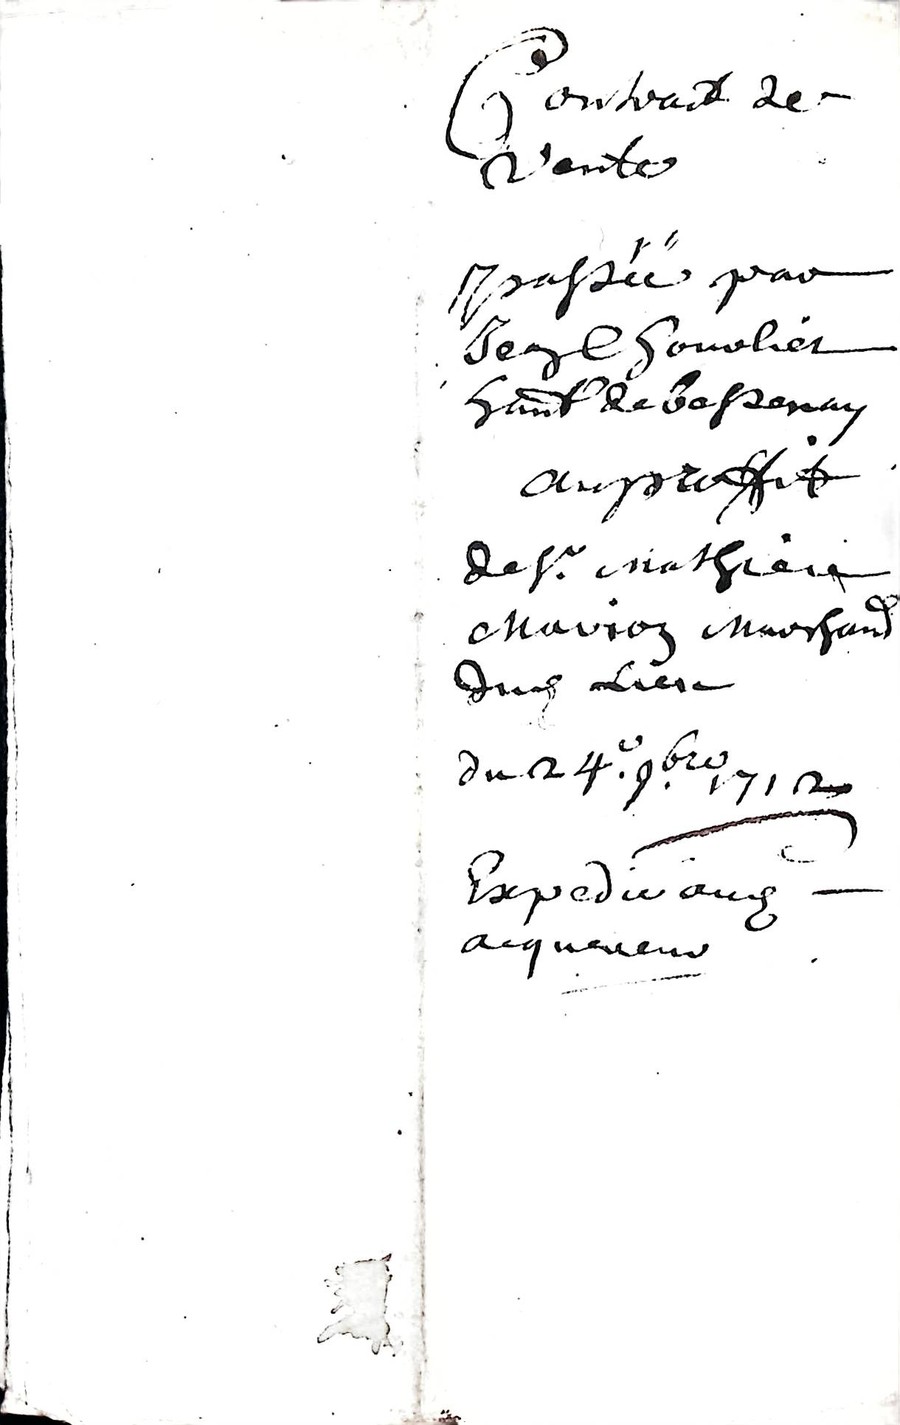 Contract de
Vente
passée par
Jean Goutelier
habt. de bessenay
au proffit
de sr. Mathieu
Marion Marchand
dud lieu
du 24e. 9bre 1712
Expedié aud
acquereur